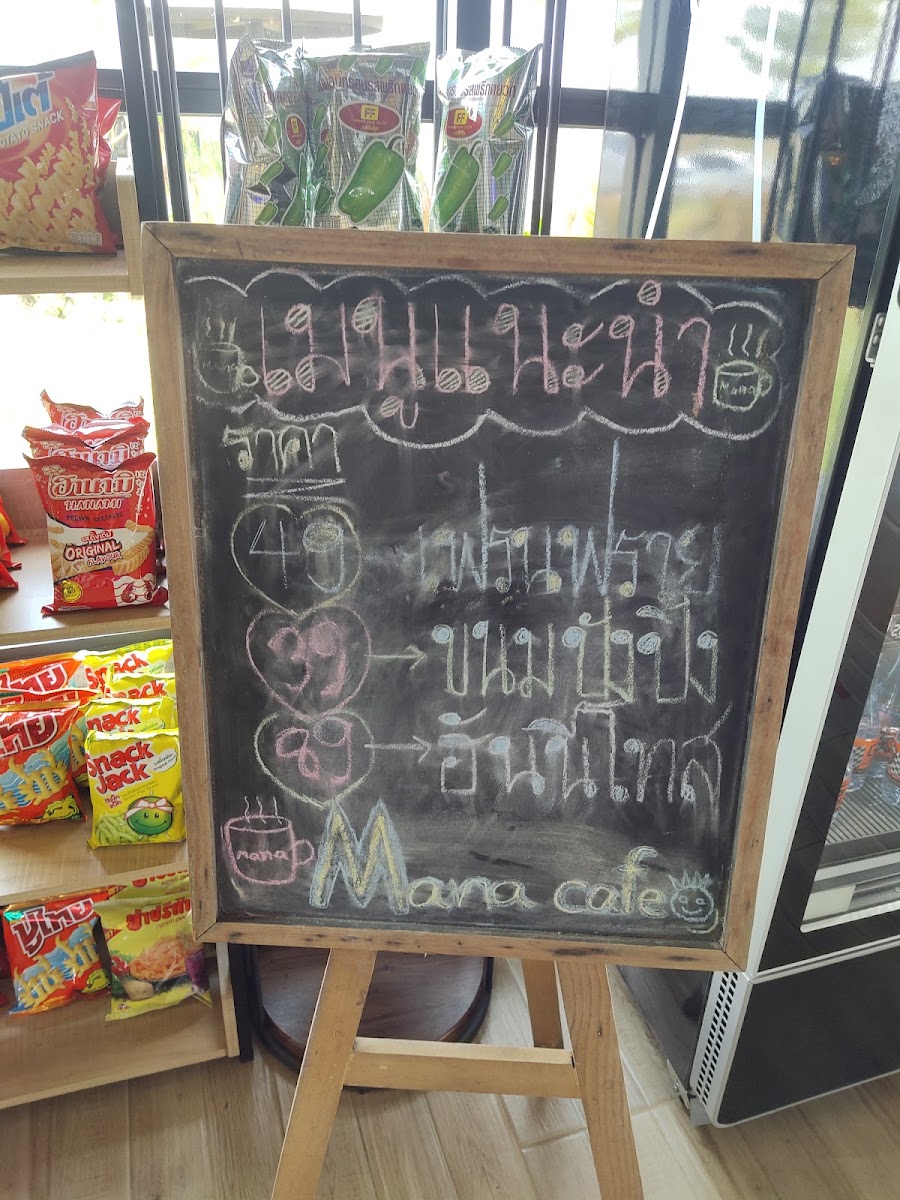 เมนูแนะนำ
mana
Mana
ราคา
49 เฟรนฟราย
39 ขนมปังปิ้ง
89 ฮันนี่โทส
mana
Mana cafe
POTATO SNACK
FF
FF
ฮานามิ
HANAMI
ORIGINAL
FLAVOUR
Snack
Snack Jack
ปูไทย